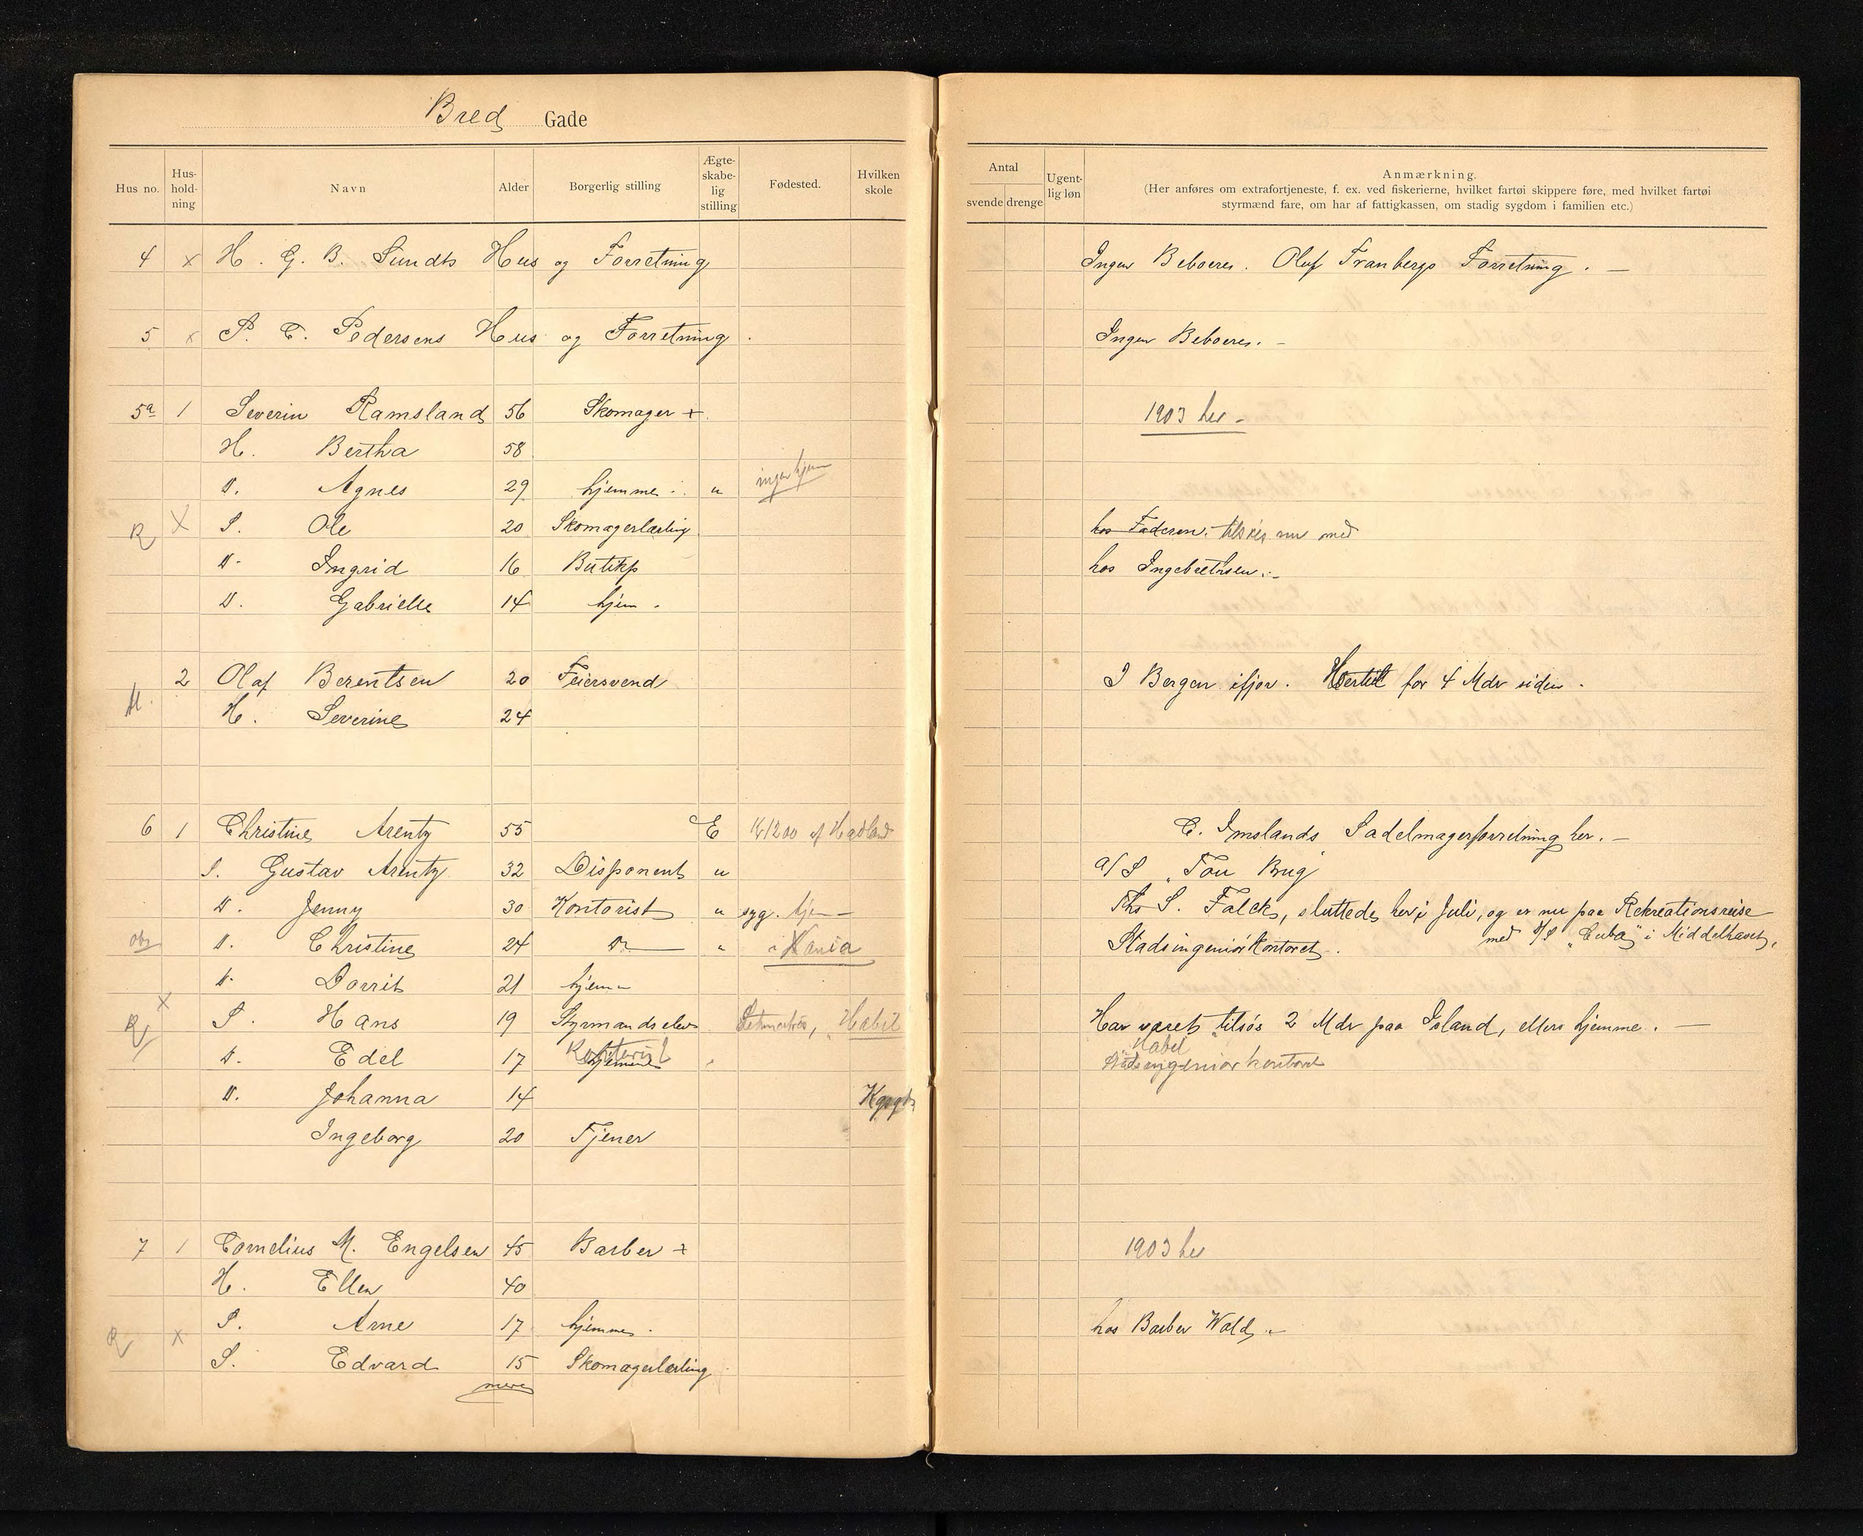 Bred Gade
Hus no. Hus-hold-ning Navn Alder Borgerlig stilling Ægte-skabe-lig stilling Fødested. Hvilken skole
Antal svende drenge Ugent-lig løn Anmærkning.
(Her anføres om extrafortjeneste, f. ex. ved fiskerierne, hvilket fartøi skippere føre, med hvilket fartøi
styrmænd fare, om har af fattigkassen, om stadig sygdom i familien etc.)
4 x H. G. B. Sundts Hus og Forretning Ingen Beboere. Oluf Tranbergs Forretning. —
5 x P. C. Pedersens Hus og Forretning. Ingen Beboere. -
5a 1 Severin Ramsland 56 Skomager + 1903 her -
H. Bertha 58
D. Agnes 29 hjemme. u ingen hjem
R X S. Ole 20 Skomagerlærling hos Faderen. tilsøs nu med
D. Ingrid 16 Butikp hos Ingebretsen.
D. Gabrielle 14 hjem.
2 Olaf Berentsen 20 Feiersvend I Bergen ifjor. Hertil for 4 Mdr siden.
M. H. Severine 24
6 1 Christine Arentz 55 E 1200 af C. Imslands Sadelmagerforretning her. —
S. Gustav Arentz 32 Disponent u A/S "Tou Brug"
D. Jenny 30 Kontorist " syg. hjem — Ths S. Falck, sluttede her i Juli, og er nu paa Rekreationsreise
med D/S "Cuba" i Middelhavet.
obs D. Christine 24 Do — " Stadsingeniørkontoret.
D. Dorrit 21 hjem
R x S. Hans 19 Styrmandselev Har været tilsøs 2 Mdr paa Island, ellers hjemme. —
D. Edel 17 hjemme Kontorist Stadsingeniørkontoret
D. Johanna 14 Kgsgd
Ingeborg 20 Tjener
7 1 Cornelius M. Engelsen 45 Barber + 1903 her
H. Ellen 40
S. Arne 17 hjemme. hos Barber Wald.
R x S. Edvard 15 Skomagerlærling
mere